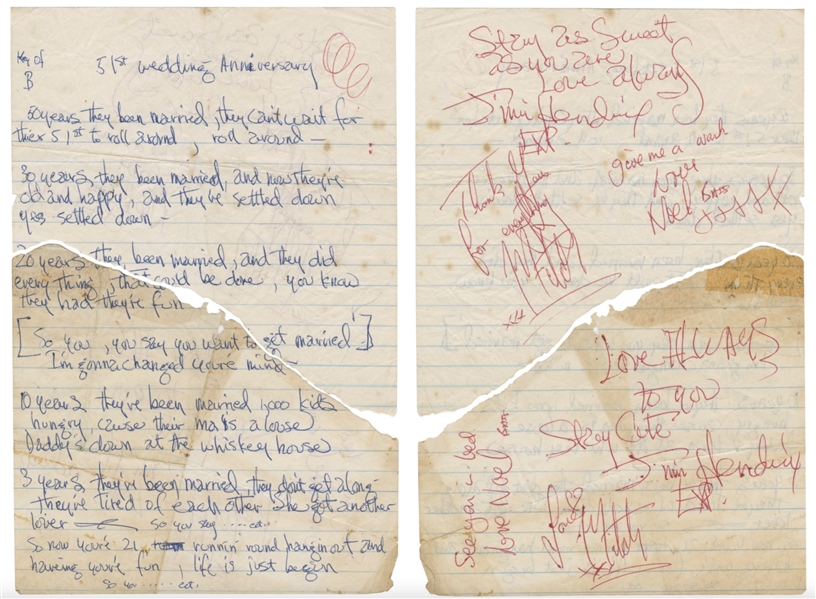 Key of
B
51st wedding Anniversary
50 years they been married, they can't wait for
their 51st to roll around, roll around —
30 years, they been married, and now they're
old and happy, and they've settled down
yes settled down —
20 years they been married, and they did
every thing, that could be done, you know
they had they're fun
[So you, you say you want to get married]
I'm gonna changed you're mind —
10 years they've been married 1,000 kids
hungry, cause their ma's a louse
Daddy's down at the whiskey house
3 years, they've been married, they don't get along
they're tired of each other she got another
lover — So you say ..... ect.
So now you're 21, runnin' round hangin out and
haveing you're fun, life is just begin
so you ..... ect.
Stay as Sweet
as you are
Love always
Jimi Hendrix
EXP.
Thank you
for everything
Mitch
xx
give me a wash
love
Noel Bass
xxxxx
Love ALWAYS
to you
Stay Cute
Jimi Hendrix
EXP.
See you in bed
love Noel Bass
Love
Mitch
xx